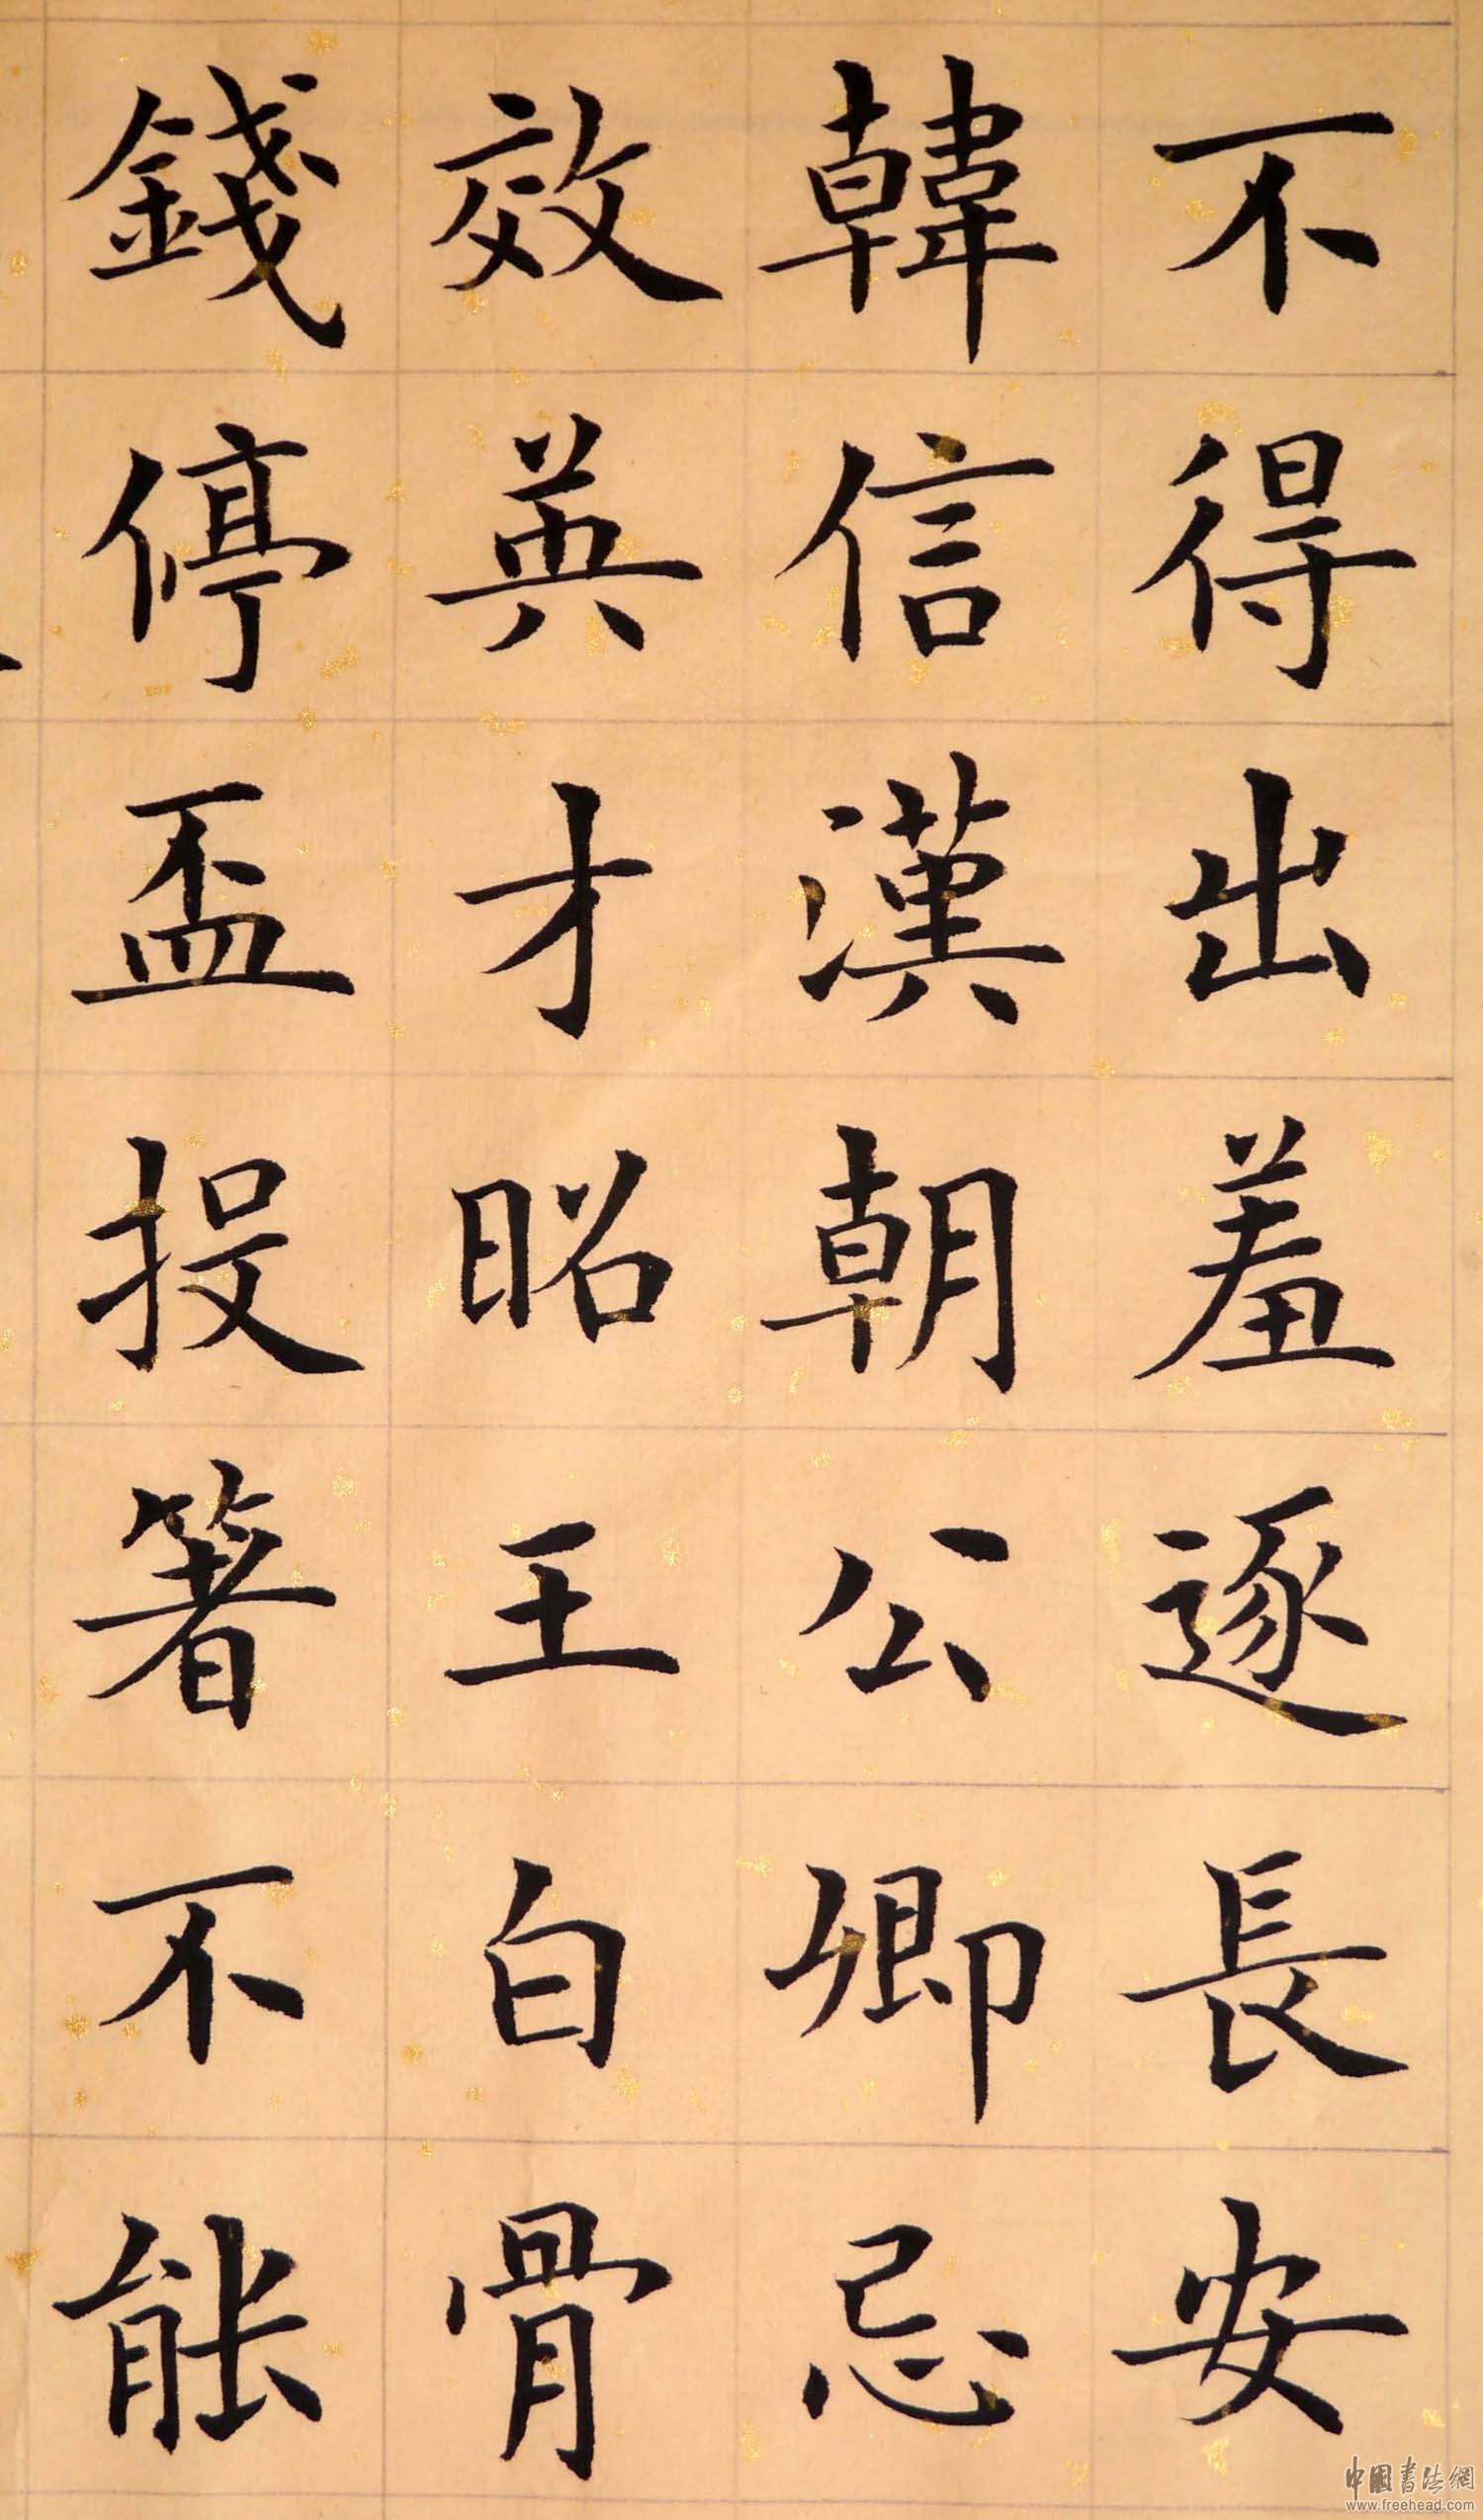 不得出羞逐長安
韓信漢朝公卿忌
效英才昭王白骨
錢停盃投箸不能
中國書法網
www.freehead.com